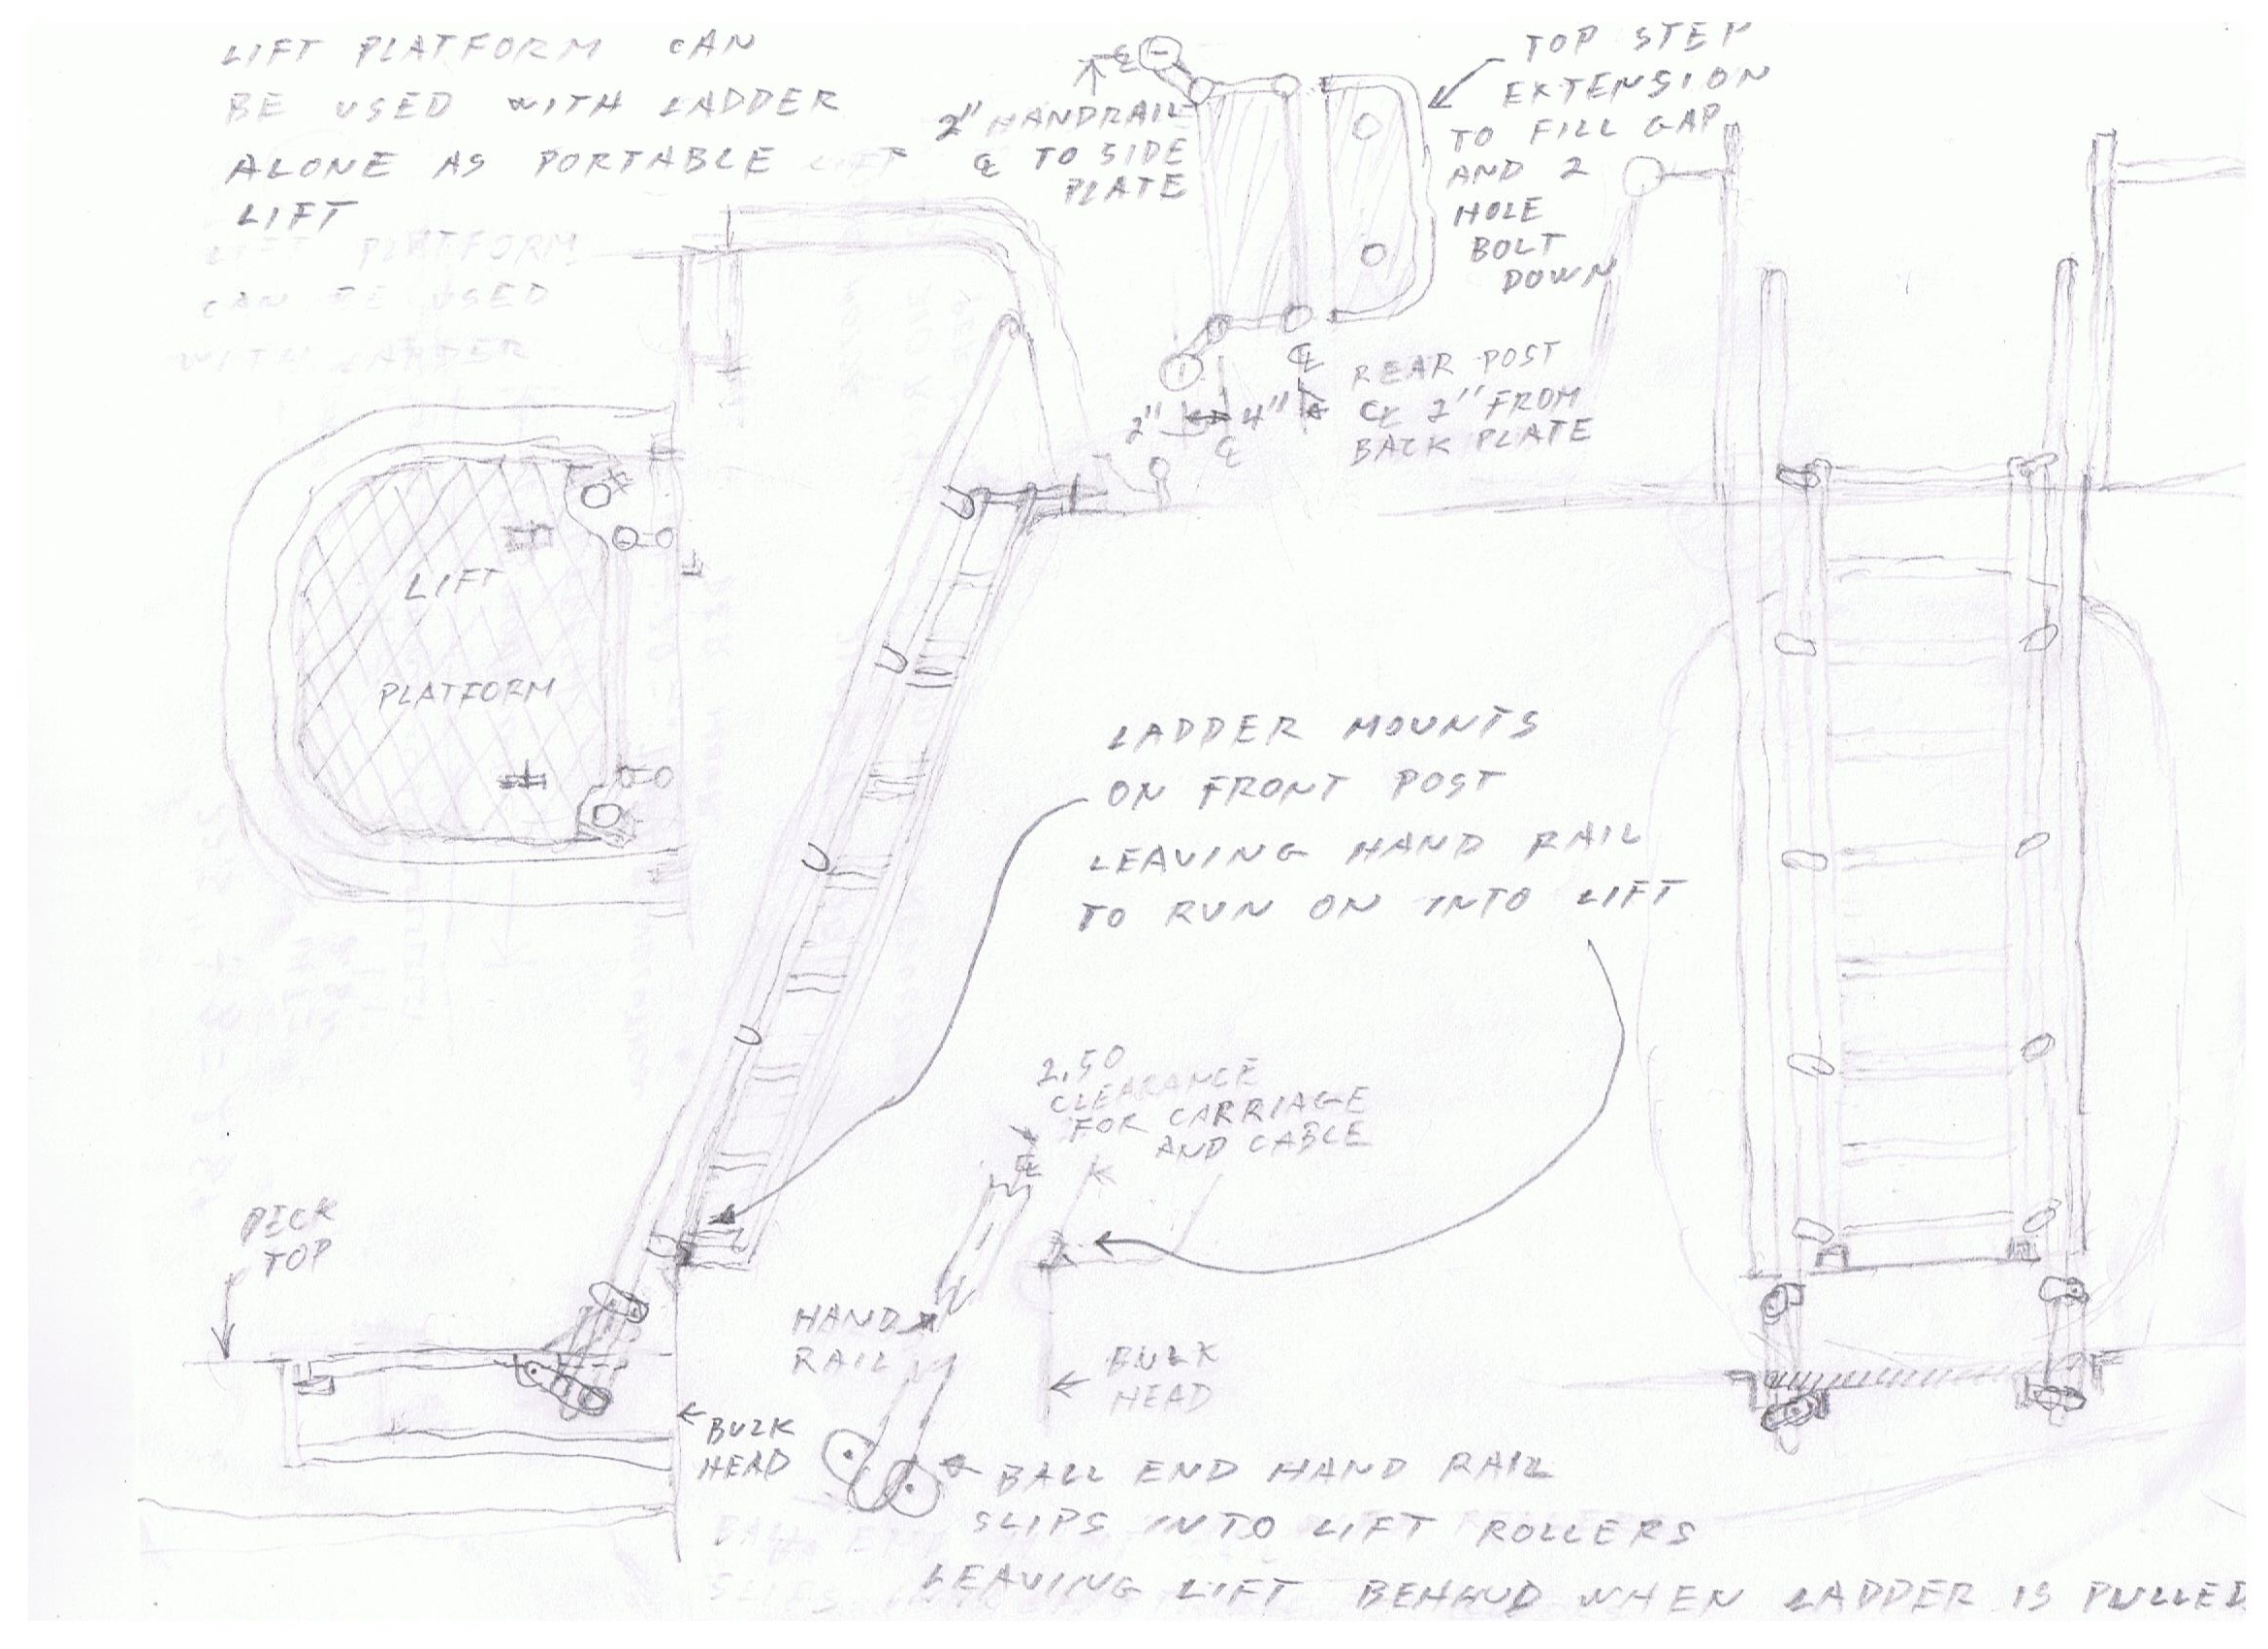 LIFT PLATFORM CAN
BE USED WITH LADDER
ALONE AS PORTABLE LIFT
LIFT
LIFT PLATFORM
CAN BE USED
WITH LADDER
℄
2" HANDRAIL
℄ TO SIDE
PLATE
TOP STEP
EXTENSION
TO FILL GAP
AND 2
HOLE
BOLT
DOWN
℄
2" 4"
℄
REAR POST
℄ 2" FROM
BACK PLATE
LIFT
PLATFORM
LADDER MOUNTS
ON FRONT POST
LEAVING HAND RAIL
TO RUN ON INTO LIFT
2.50
CLEARANCE
FOR CARRIAGE
AND CABLE
℄
DECK
TOP
HAND
RAIL
BULK
HEAD
BULK
HEAD
BALL END HAND RAIL
SLIPS INTO LIFT ROLLERS
LEAVING LIFT BEHIND WHEN LADDER IS PULLED
BALL EN
SLIPS